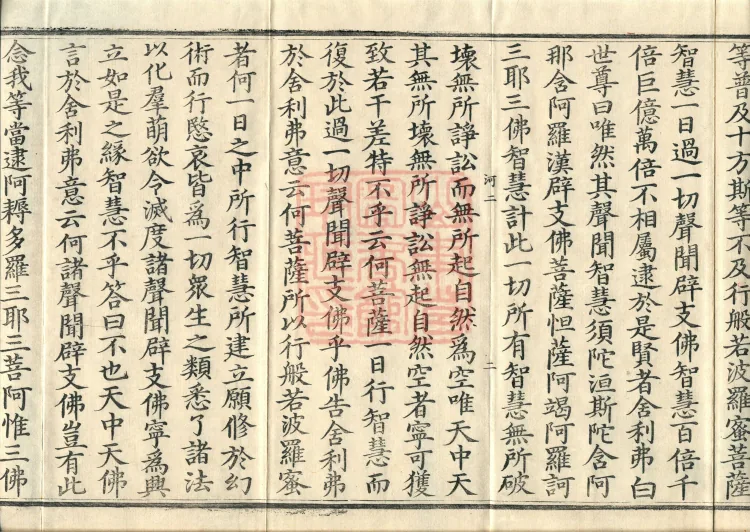 等普及十方斯等不及行般若波羅蜜菩薩
智慧一日過一切聲聞辟支佛智慧百倍千
倍巨億萬倍不相屬逮於是賢者舍利弗白
世尊曰唯然其聲聞智慧須陀洹斯陀含阿
那含阿羅漢辟支佛菩薩怛薩阿竭阿羅訶
三耶三佛智慧計此一切所有智慧無所破
河二
二
壞無所諍訟而無所起自然為空唯天中天
其無所壞無所諍訟無起自然空者寧可獲
致若干差特不乎云何菩薩一日行智慧而
復於此過一切聲聞辟支佛乎佛告舍利弗
於舍利弗意云何菩薩所以行般若波羅蜜
者何一日之中所行智慧所建立願修於幻
術而行愍哀皆為一切眾生之類悉了諸法
以化羣萌欲令滅度諸聲聞辟支佛寧為興
立如是之緣智慧不乎答曰不也天中天佛
言於舍利弗意云何諸聲聞辟支佛豈有此
念我等當逮阿耨多羅三耶三菩阿惟三佛